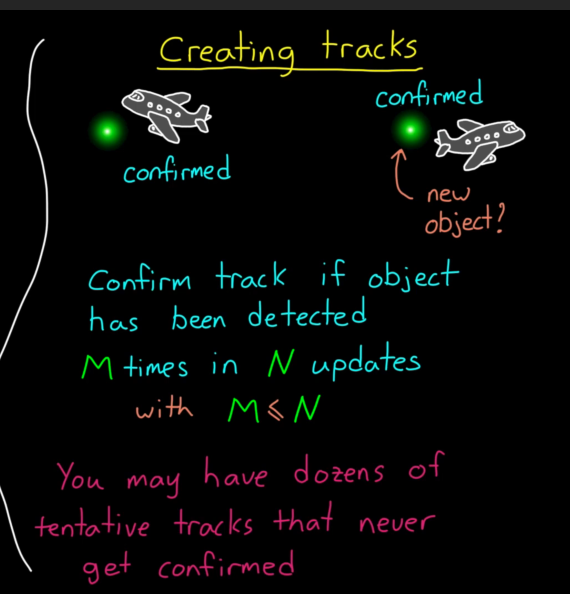 Creating tracks
confirmed
confirmed
new
object?
Confirm track if object
has been detected
M times in N updates
with M ≤ N
You may have dozens of
tentative tracks that never
get confirmed